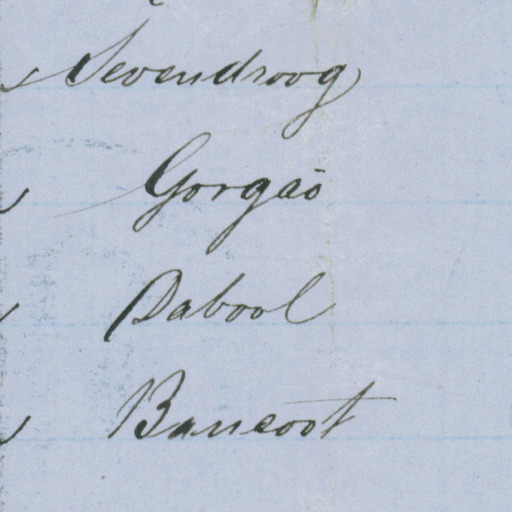 Sevendroog
Gorgaō
Dabool
Bancoot